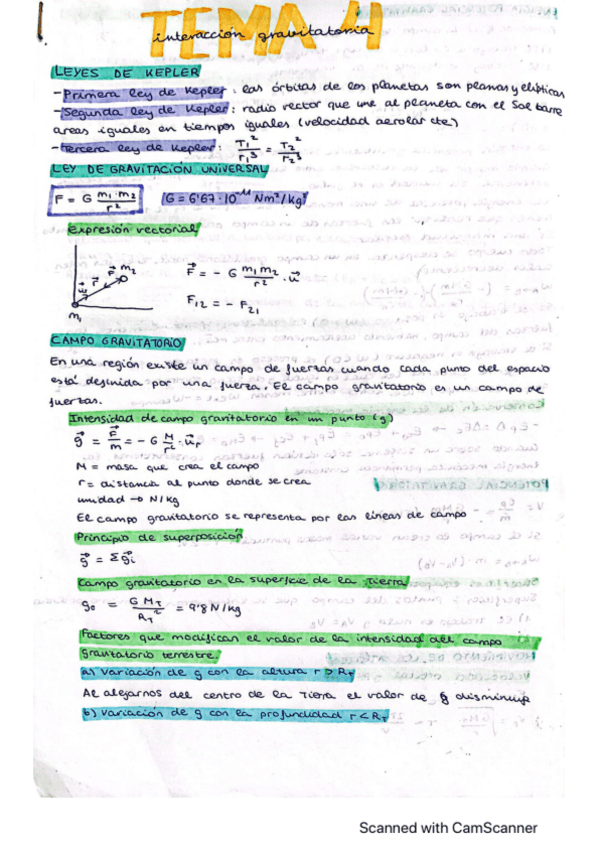 TEMA 11
interacción gravitatoria
LEYES DE KEPLER
-Primera ley de Kepler: las órbitas de los planetas son planas y elípticas
-Segunda ley de Kepler: radio vector que une al planeta con el Sol barre
areas iguales en tiempos iguales (velocidad aerolar cte)
-tercera ley de Kepler: T₁²/r₁³ = T₂²/r₂³
LEY DE GRAVITACIÓN UNIVERSAL
F = G m₁·m₂/r² G = 6'67·10⁻¹¹ Nm²/kg²
Expresión vectorial
F⃗ = - G m₁m₂/r² · u⃗
F₁₂ = - F₂₁
m₁ u⃗ r⃗ F⃗ m₂
CAMPO GRAVITATORIO
En una región existe un campo de fuerzas cuando cada punto del espacio
está definida por una fuerza. El campo gravitatorio es un campo de
fuerzas.
Intensidad de campo gravitatorio en un punto (g)
g⃗ = F⃗/m = - G M/r² · u⃗r
M = masa que crea el campo
r = distancia al punto donde se crea
unidad → N/kg
El campo gravitatorio se representa por las líneas de campo
Principio de superposición
g⃗ = Σg⃗i
Campo gravitatorio en la superficie de la Tierra
g₀ = G M_T/R_T² = 9'8 N/kg
Factores que modifican el valor de la intensidad del campo
gravitatorio terrestre.
a) Variación de g con la altura r > R_T
Al alejarnos del centro de la Tierra el valor de g disminuye
b) Variación de g con la profundidad r < R_T
Scanned with CamScanner